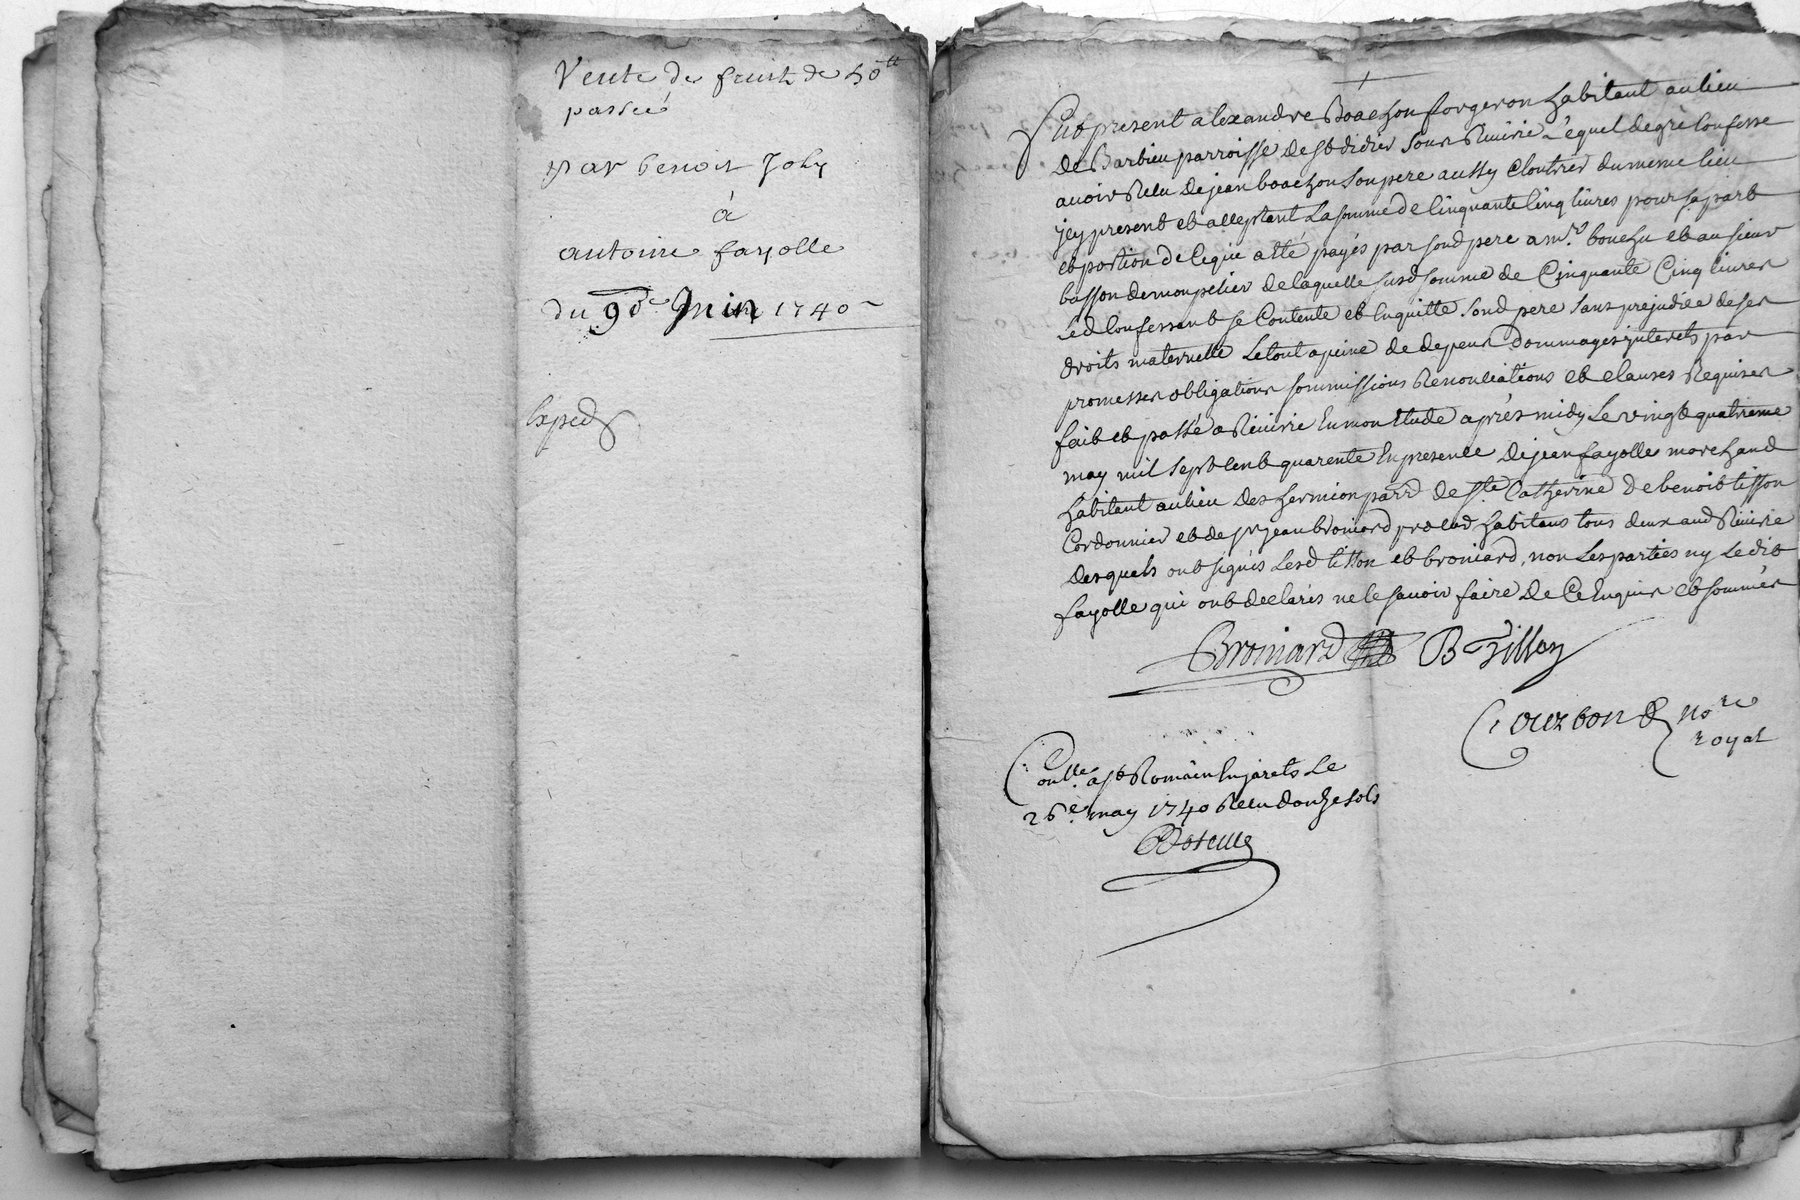 Vente de fruit de 50 tt
passée
par benoit Joly
à
antoine fayolle
du 9e Juin 1740
Exped
fut present alexandre Boachon forgeron habitant au lieu
de Barbieu parroisse de st didier sour Riuirie Lequel de gré Confesse
auoir Recu de jean boachon son pere aussy Cloutrier du meme lieu
jcy present et acceptant La somme de Cinquante Cinq liures pour sa part
et portion de ce qui a eté payés par sond pere a mr. bouchu et au sieur
basson de monpelier de laquelle susd somme de Cinquante Cinq liures
Led Confessant se Contente et Enquitte sond pere sans prejudice de ses
droits maternelle Le tout a peine de depens dommages jnterets par
promesses obligations sommissions Renonciations et clauses Requises
fait et passé a Riuirie En mon Etude après midy Le vingt quatrieme
may mil sept cent quarente En presence de jean fayolle marchand
habitant au lieu des hermion parr de ste Catherine de benoit tisson
Cordonnier et de sr jean broniard habitans tous deux aud Riuirie
desquels ont signés Lesd tisson et broniard, non Les parties ny Le dit
fayolle qui ont declarés ne le sauoir faire de Ce Enquis et sommés
Broniard B Tisson
Courbon nore
royal
Conlle a st Romain En jarets Le
26e may 1740 Recu douze sols